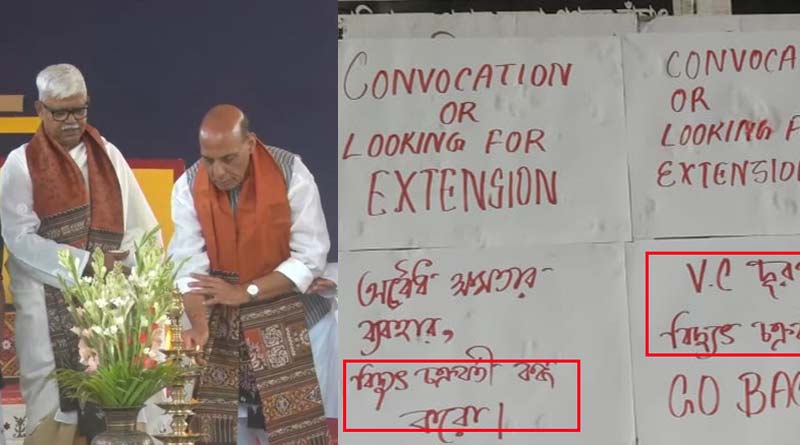 CONVOCATION
OR
LOOKING FOR
EXTENSION
CONVOCA
OR
LOOKING F
EXTENSION
অবৈধ ক্ষমতার
ব্যবহার,
বিদ্যুৎ চক্রবর্তী বন্ধ
করো।
V.C দূর
বিদ্যুৎ চক্রব
GO BAC